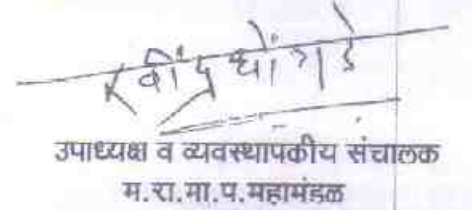 रवींद्र धोंगडे
उपाध्यक्ष व व्यवस्थापकीय संचालक
म.रा.मा.प.महामंडळ